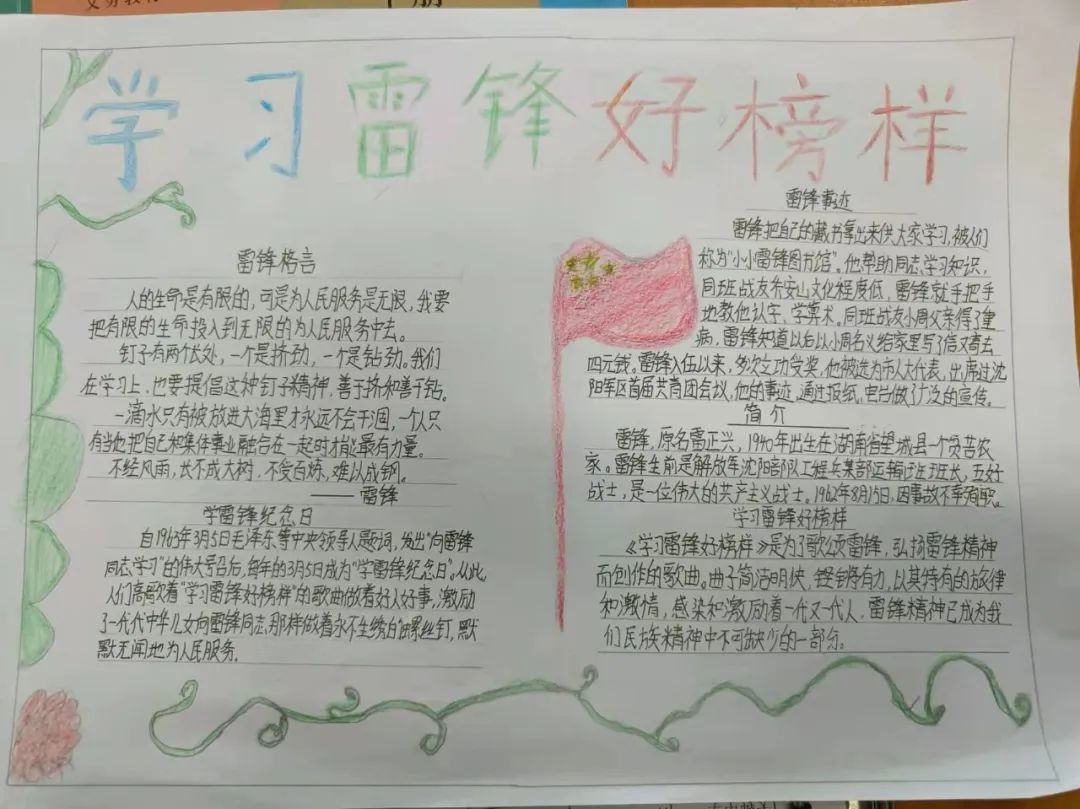 学习雷锋好榜样
雷锋格言
人的生命是有限的，可是为人民服务是无限，我要
把有限的生命投入到无限的为人民服务中去。
钉子有两个长处，一个是挤劲，一个是钻劲。我们
在学习上，也要提倡这种钉子精神，善于挤和善于钻。
一滴水只有被放进大海里才永远不会干涸，一个人只
有当他把自己和集体事业融合在一起时才能最有力量。
不经风雨，长不成大树，不受百炼，难以成钢。
——雷锋
学雷锋纪念日
自1963年3月5日毛泽东等中央领导人题词，发出“向雷锋
同志学习”的伟大号召后，每年的3月5日成为“学雷锋纪念日”。从此，
人们高歌着“学习雷锋好榜样”的歌曲做着好人好事，激励
了一代代中华儿女向雷锋同志，那样做着永不生锈的“螺丝钉”，默
默无闻地为人民服务。
雷锋事迹
雷锋把自己的藏书拿出来供大家学习，被人们
称为“小小雷锋图书馆”。他帮助同志学习知识，
同班战友乔安山文化程度低，雷锋就手把手
地教他认字、学算术。同班战友小周父亲得了重
病，雷锋知道以后以小周名义给家里写了信又寄去
四元钱。雷锋入伍以来，多次立功受奖，他被选为市人大代表，出席过沈
阳军区首届共青团会议，他的事迹，通过报纸、电台做了广泛的宣传。
简介
雷锋，原名雷正兴，1940年出生在湖南省望城县一个贫苦农
家。雷锋生前是解放军沈阳部队工程兵某部运输班班长，五好
战士，是一位伟大的共产主义战士。1962年8月15日，因事故不幸殉职。
学习雷锋好榜样
《学习雷锋好榜样》是为了歌颂雷锋，弘扬雷锋精神
而创作的歌曲。曲子简洁明快，铿锵有力，以其特有的旋律
和激情，感染和激励着一代又一代人，雷锋精神已成为我
们民族精神中不可缺少的一部分。